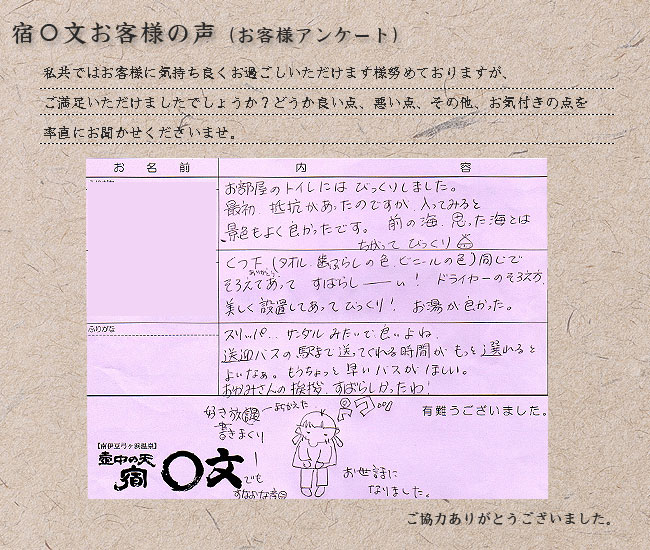 宿〇文お客様の声（お客様アンケート）
私共ではお客様に気持ち良くお過ごしいただけます様努めておりますが、
ご満足いただけましたでしょうか？どうか良い点、悪い点、その他、お気付きの点を
率直にお聞かせくださいませ。
お名前 内容
お部屋のトイレには びっくりしました。
最初、抵抗があったのですが 入ってみると
景色もよく良かったです。 前の海、思った海とは
ちがって びっくり
くつ下、(タオル、歯ぶらしの色、ビニールの色)同じで
そろえてあって ありがとう すばらしーい! ドライヤーのそろえ方
美しく設置してあってびっくり! お湯が良かった。
ふりがな
スリッパ… サンダルみたいで 良いよね
送迎バスの駅まで送ってくれる時間が もっと選れると
よいなぁ。 もうちょっと早いバスが ほしい。
おかみさんの挨拶、すばらしかったわ!
好き放題
書きまくり
でも
すなおな声
有難うございました。
お世話に
なりました。
【南伊豆弓ヶ浜温泉】
壺中の天
宿 〇文
ご協力ありがとうございました。